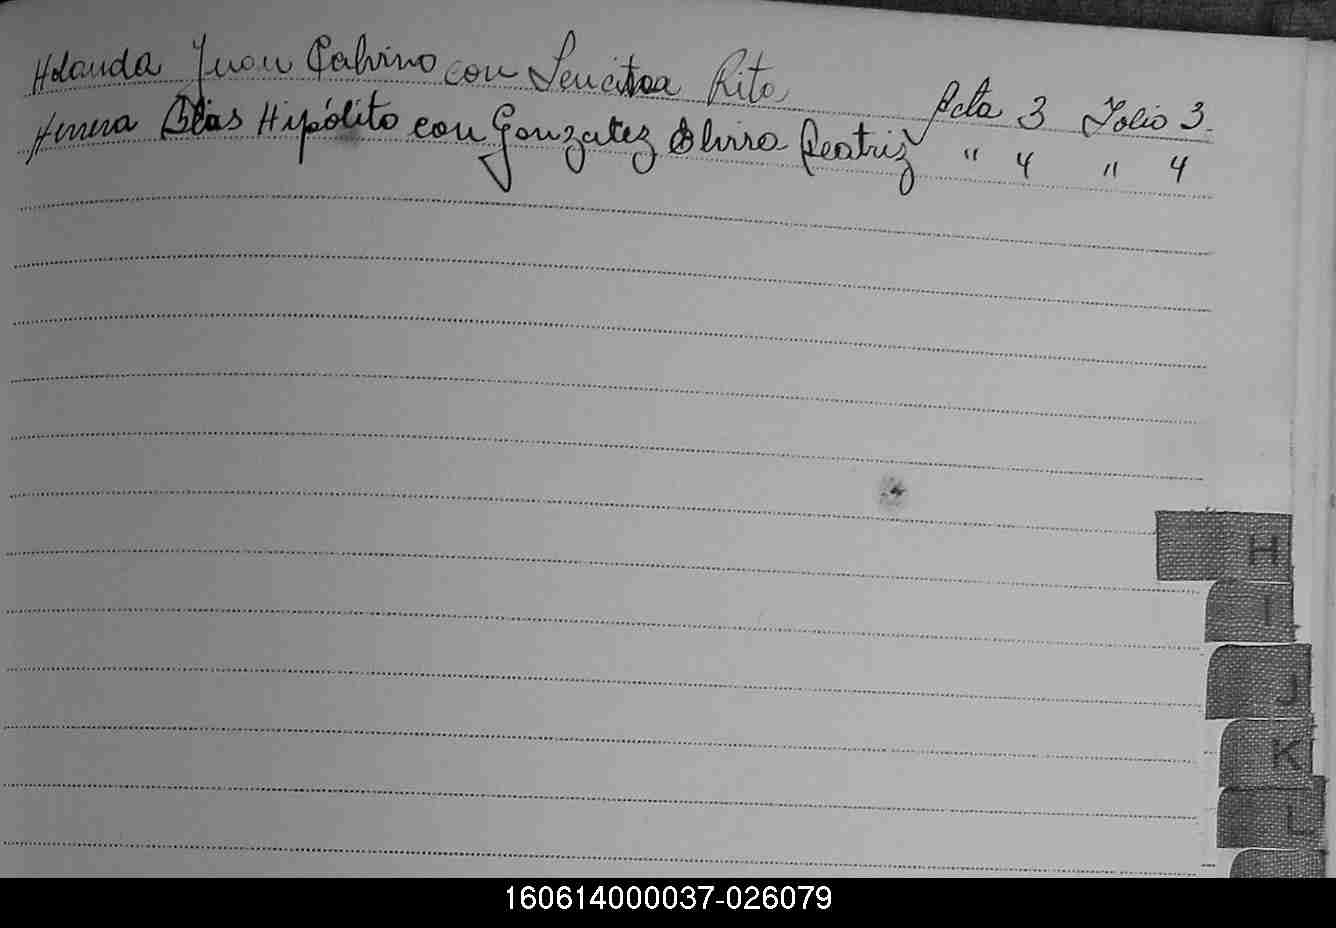 Holanda Juan Calvino con Rita Acta 3 Folio 3.
Herrera Blas Hipólito con Gonzalez Elvira Beatriz " 4 " 4
H
I
J
K
L
160614000037-026079